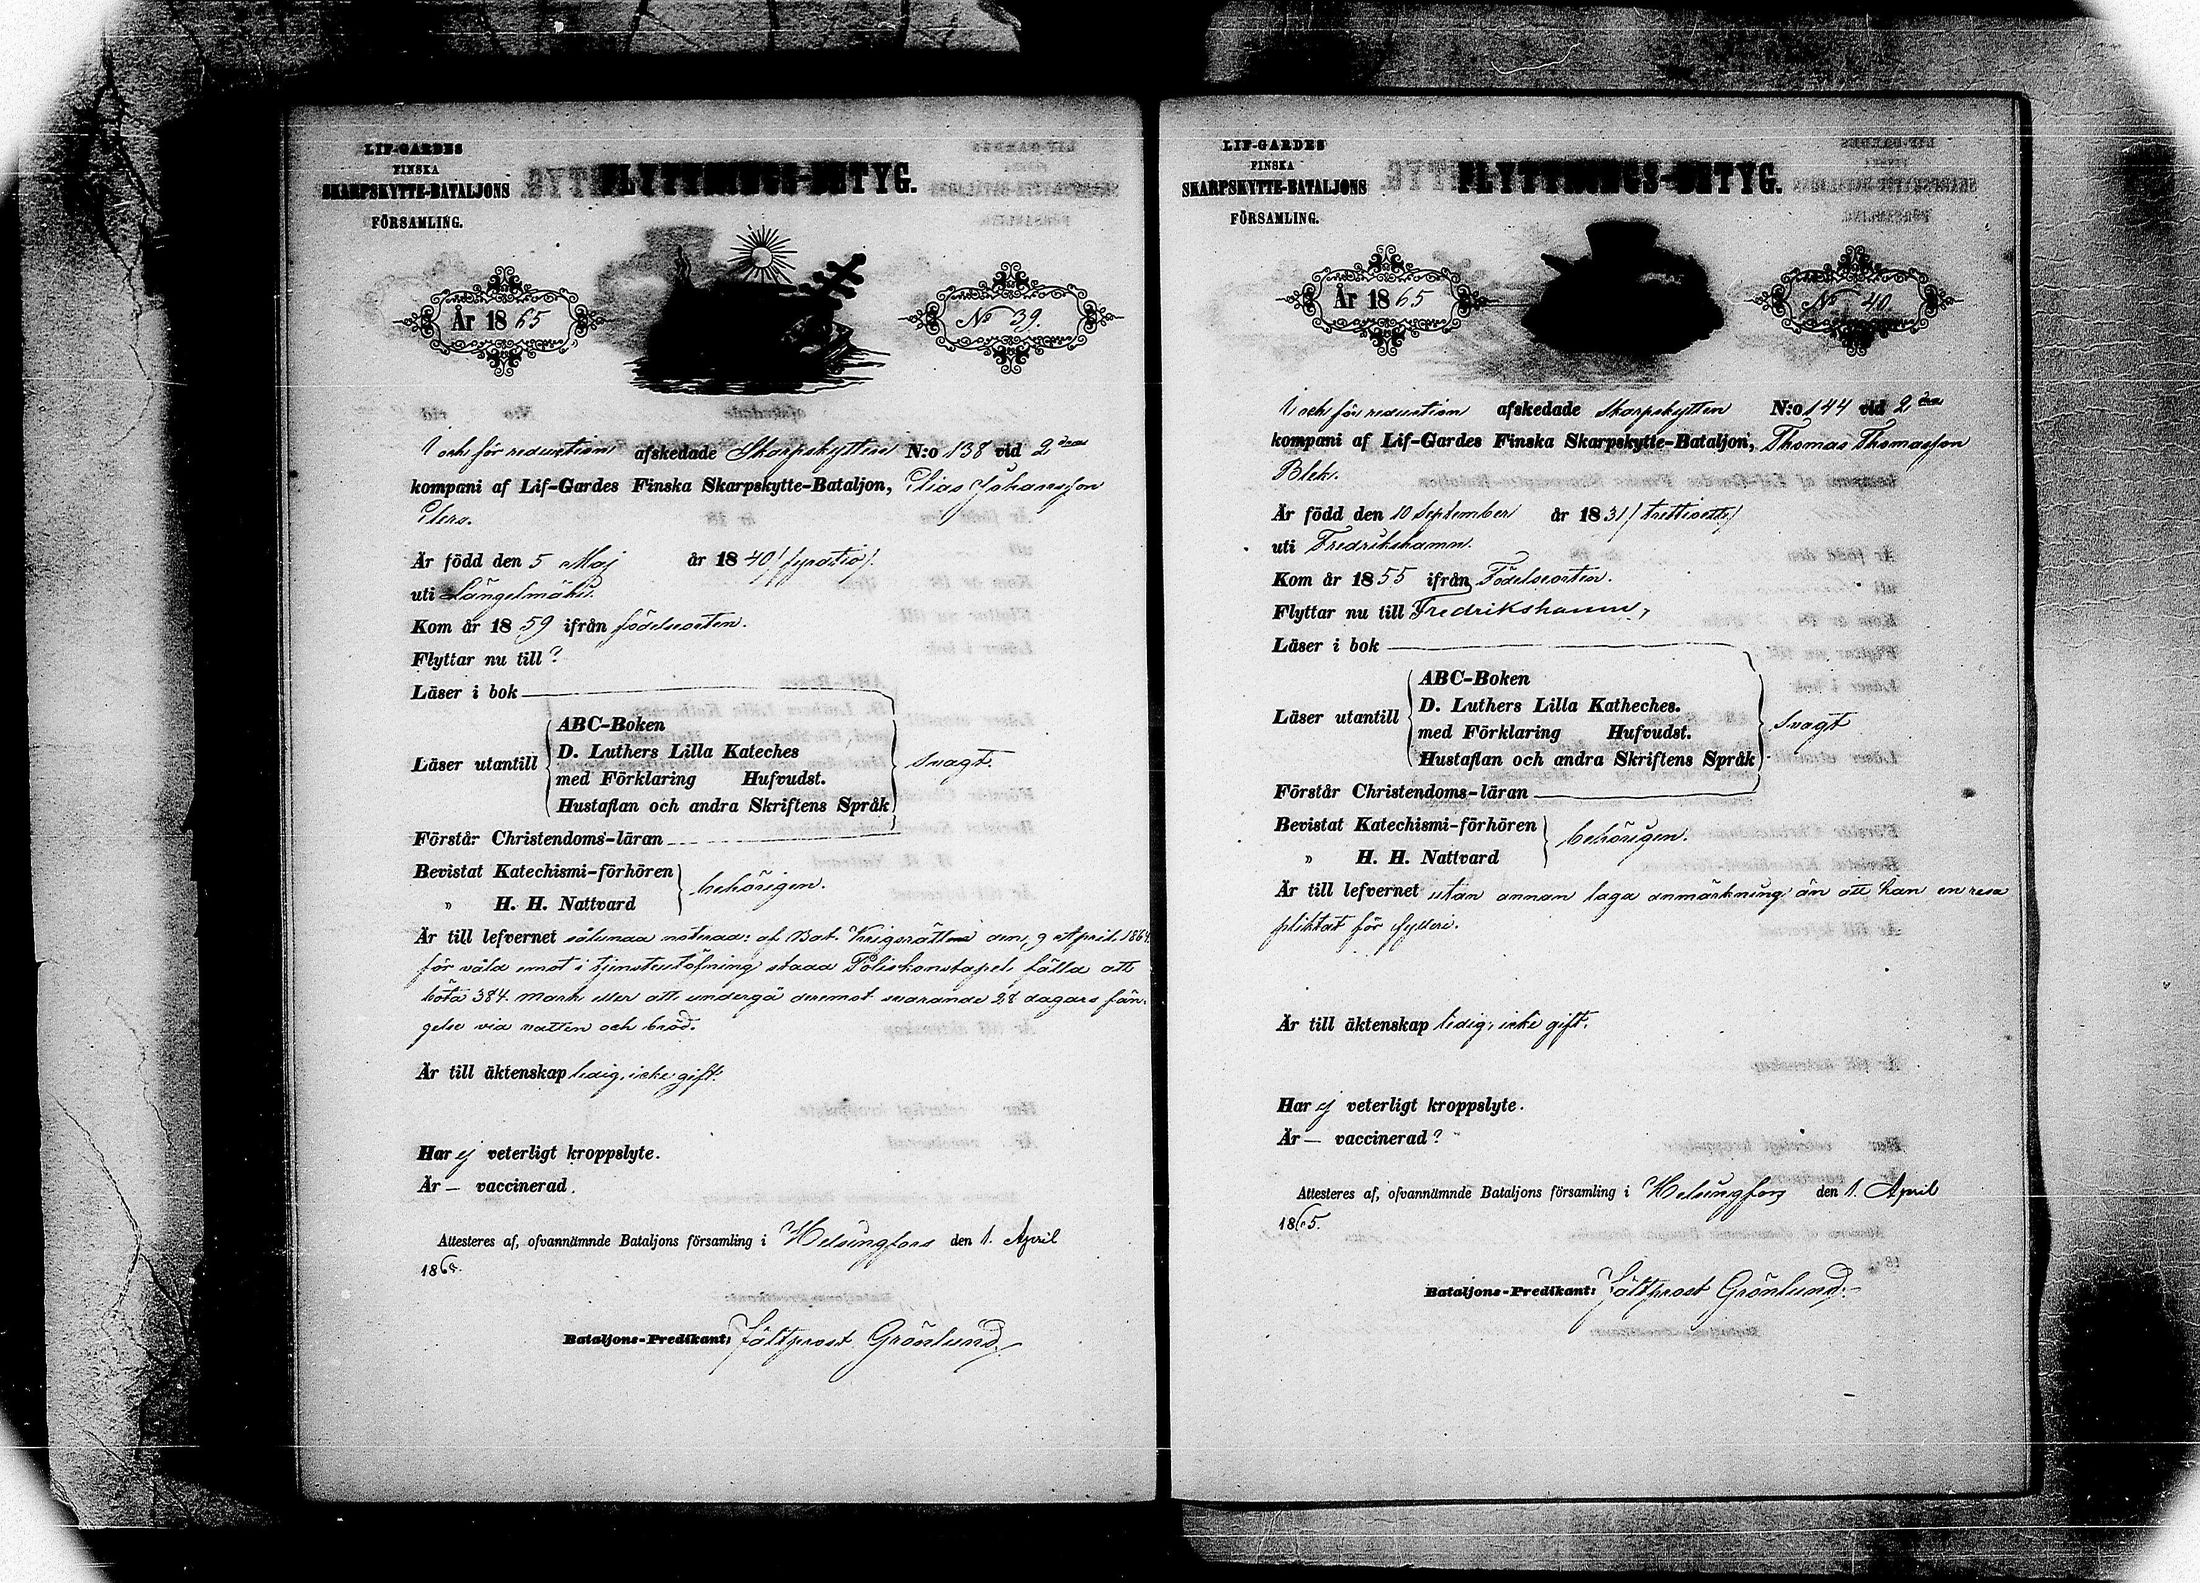 LIF-GARDES
FINSKA
SKARPSKYTTE-BATALJONS
FÖRSAMLING.
FLYTTNINGS-BETYG.
År 1865
No 39.
I och för reduction afskedade Skarpskytten N:o 138 vid 2dra
kompani af Lif-Gardes Finska Skarpskytte-Bataljon, Elias Johansson
Elers.
Är född den 5 Maj år 1840 (fyratio).
uti Längelmäki.
Kom år 1859 ifrån födelseorten.
Flyttar nu till?
Läser i bok
Läser utantill
ABC-Boken
D. Luthers Lilla Kateches
med Förklaring Hufvudst.
Hustaflan och andra Skriftens Språk
Svagt.
Förstår Christendoms-läran
Bevistat Katechismi-förhören
„ H. H. Nattvard
behörigen.
Är till lefvernet sålunda noterad: af Bat. Krigsrätten den 9 April 1864
för våld emot i tjensteutöfning stadd Poliskonstapel, fälld att
böta 384 mark eller att undergå deremot svarande 28 dagars fän-
gelse vid vatten och bröd.
Är till äktenskap ledig, icke gift.
Har ej veterligt kroppslyte.
Är — vaccinerad.
Attesteres af, ofvannämnde Bataljons församling i Helsingfors den 1. April
1865.
Bataljons-Predikant: Fältprost Grönlund.
LIF-GARDES
FINSKA
SKARPSKYTTE-BATALJONS
FÖRSAMLING.
FLYTTNINGS-BETYG.
År 1865
No 40.
I och för reduction afskedade Skarpskytten N:o 144 vid 2dra
kompani af Lif-Gardes Finska Skarpskytte-Bataljon, Thomas Thomasson
Blek.
Är född den 10 September år 1831 (trettioett)
uti Fredrikshamn.
Kom år 1855 ifrån Födelseorten.
Flyttar nu till Fredrikshamn,
Läser i bok
Läser utantill
ABC-Boken
D. Luthers Lilla Katheches.
med Förklaring Hufvudst.
Hustaflan och andra Skriftens Språk
Svagt
Förstår Christendoms-läran
Bevistat Katechismi-förhören
„ H. H. Nattvard
behörigen.
Är till lefvernet utan annan laga anmärkning än att han en resa
pliktat för fylleri.
Är till äktenskap ledig, icke gift.
Har ej veterligt kroppslyte.
Är — vaccinerad?
Attesteres af, ofvannämnde Bataljons församling i Helsingfors den 1. April
1865.
Bataljons-Predikant: Fältprost Grönlund.